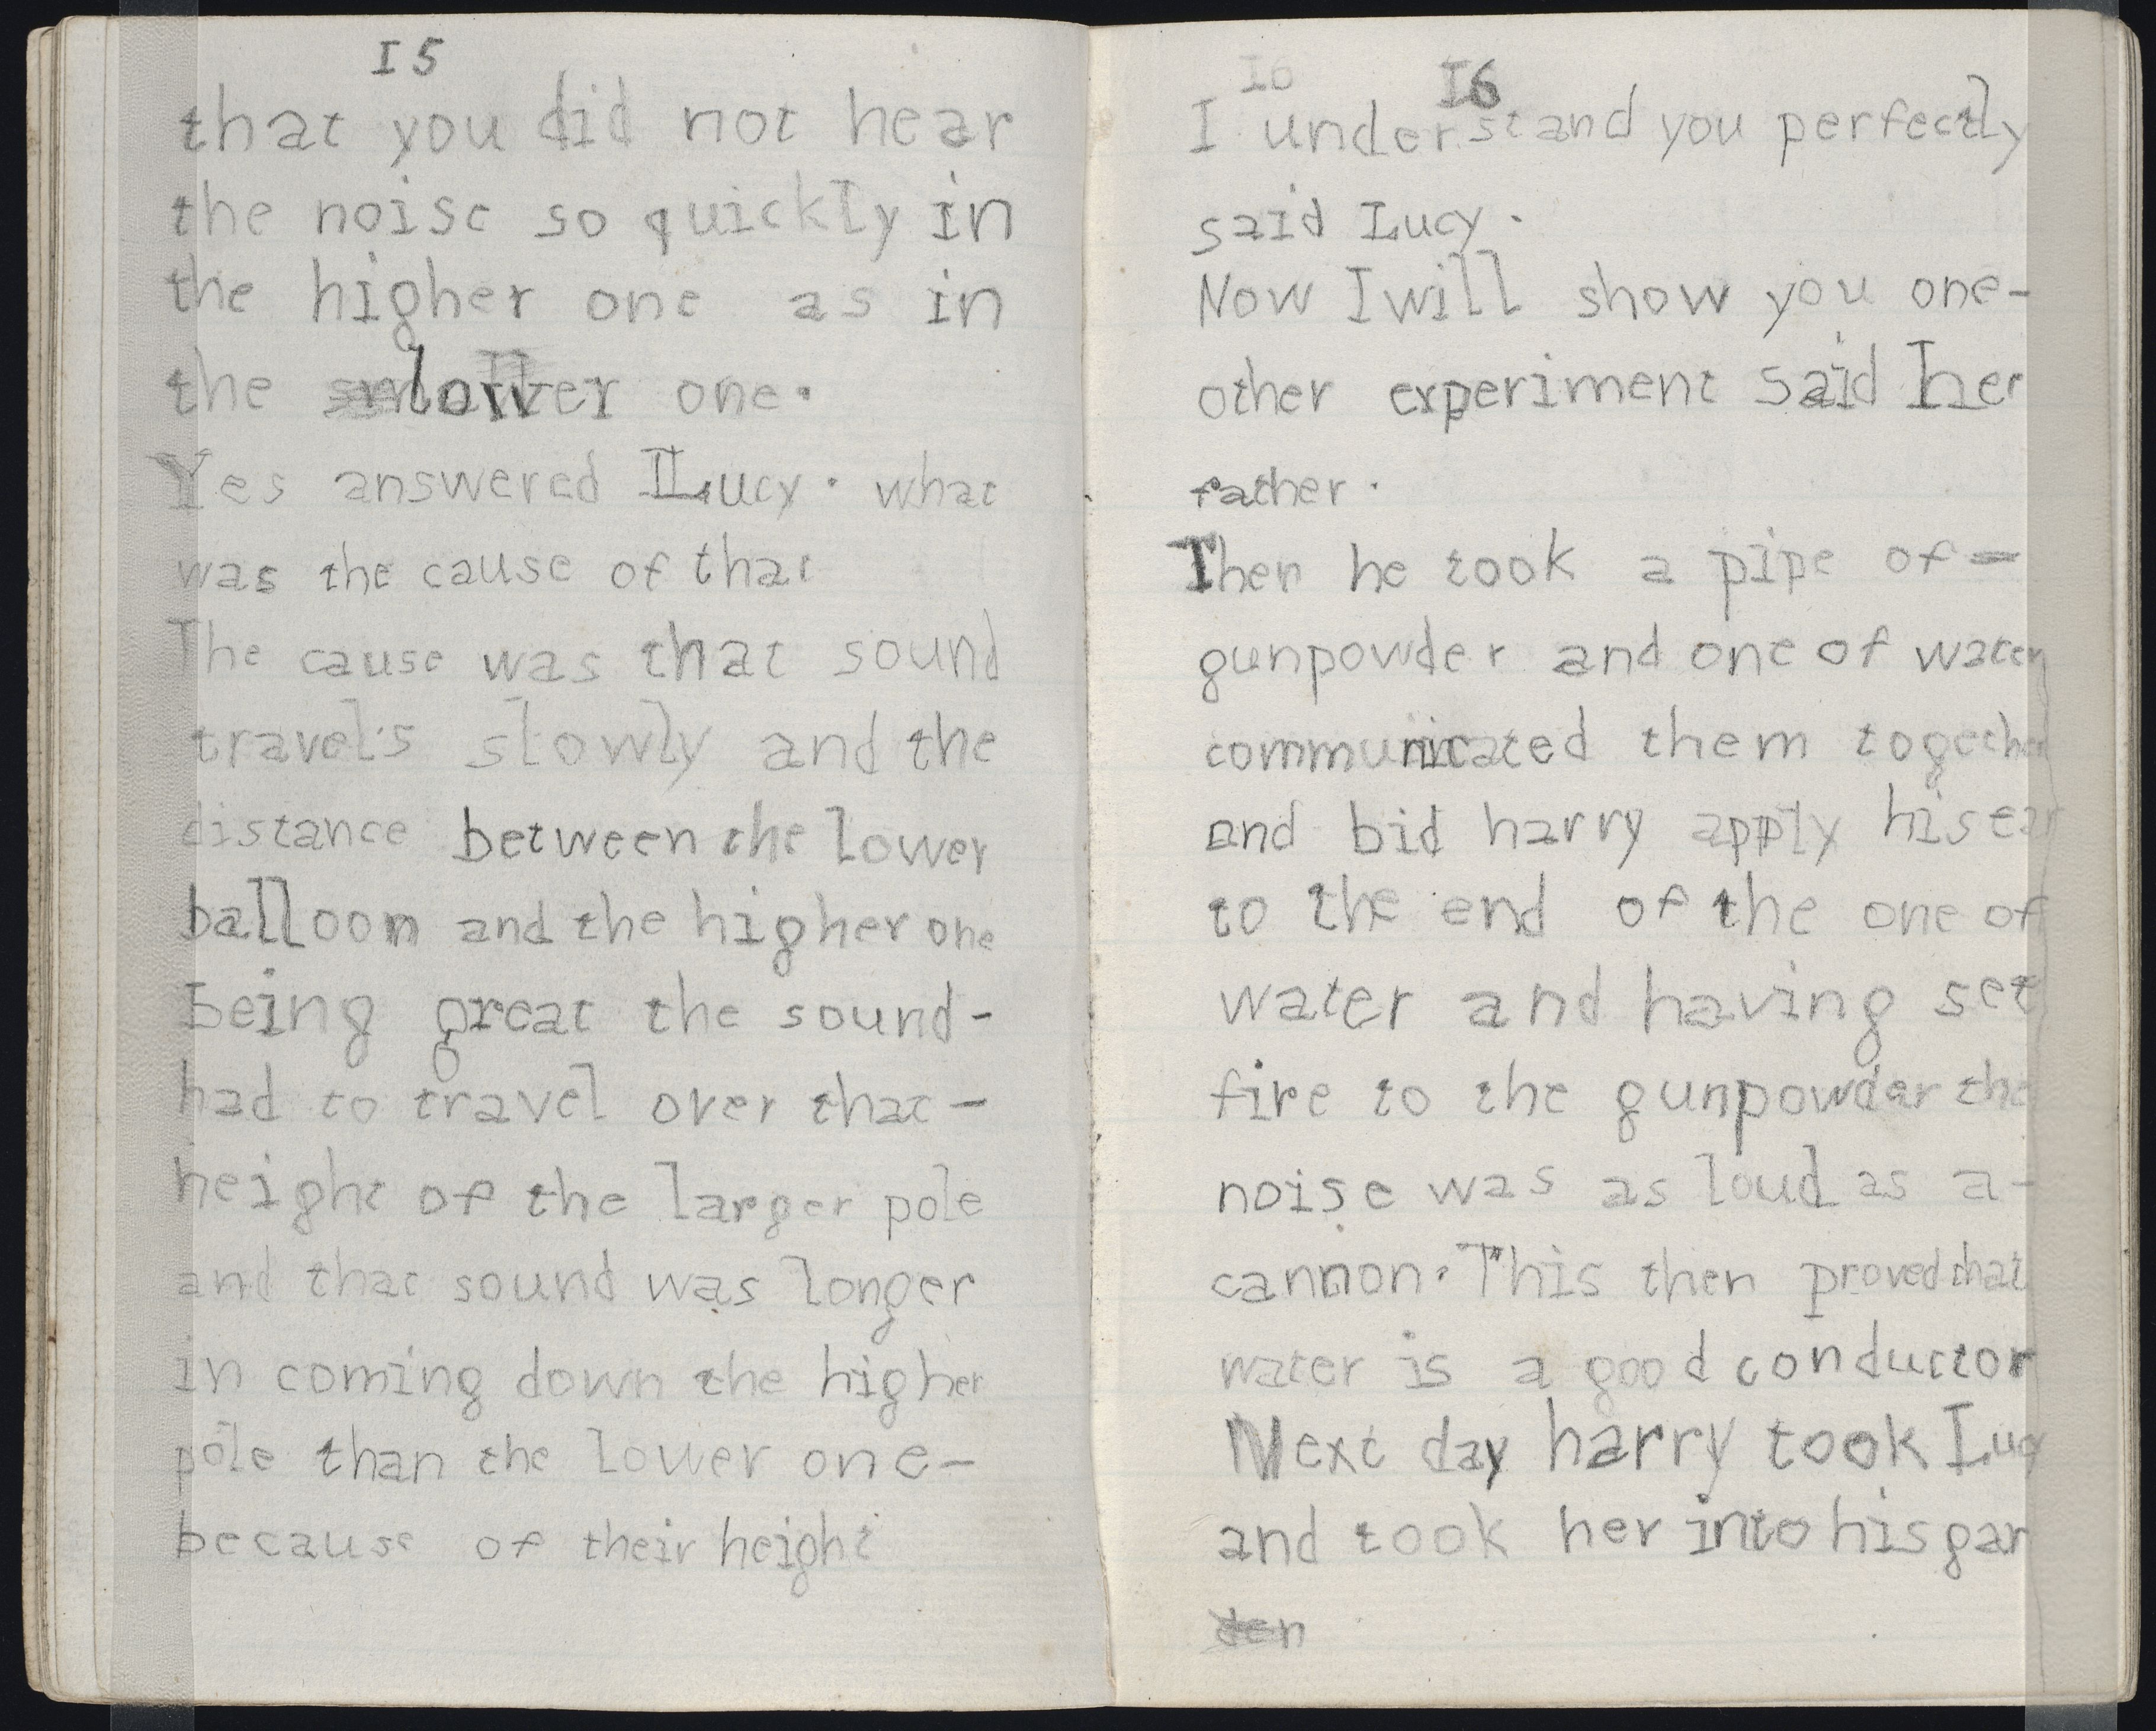 15
that you did not hear
the noise so quickly in
the higher one as in
the lower one.
Yes answered Lucy. what
was the cause of that
The cause was that sound
travels slowly and the
distance between the lower
balloon and the higher one
being great the sound-
had to travel over that-
height of the larger pole
and that sound was longer
in coming down the higher
pole than the lower one-
because of their height
16
I understand you perfectly
said Lucy.
Now I will show you one-
other experiment said her
father.
Then he took a pipe of-
gunpowder and one of water
communicated them together
and bid harry apply his ear
to the end of the one of
water and having set
fire to the gunpowder the
noise was as loud as a-
cannon. This then proved that
water is a good conductor
Next day harry took Lucy
and took her into his gar
den